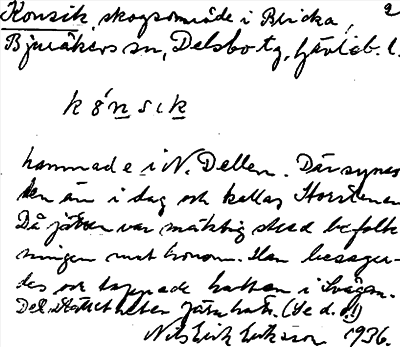 Konsik, skogsområde i Blicka, 2
Bjuråkers sn, Delsbo tg, Gävleb. l.
kónsik
hamnade i N. Dellen. Där synes
den än i dag och kallas Storstenen
Då jätten var mäktig stred befolk
ningen mot honom. Han besegra-
des och tappade hatten i Svågan.
Del. stället heter Järnhatt. (Se d. o.!)
Nils Erik Eriksson 1936.